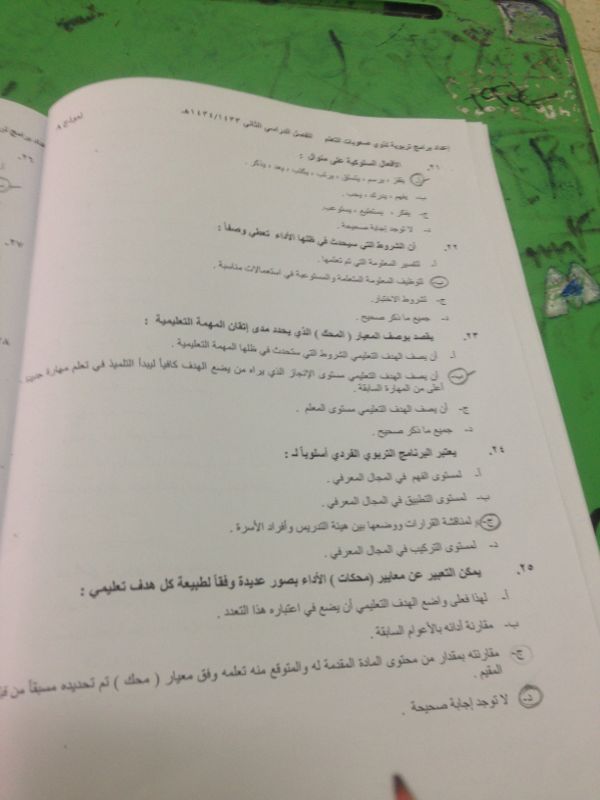 إعداد برامج تربوية لذوي صعوبات التعلم الفصل الدراسي الثاني ١٤٣٤/١٤٣٣هـ
٢١. الأفعال السلوكية على منوال :
أ. يقفز ، يرسم ، يتسلق ، يرتب ، يكتب ، يعد ، يذكر .
ب- يفهم ، يدرك ، يحب .
ج- يفكر ، يستطيع ، يستوعب.
د- لا توجد إجابة صحيحة .
٢٢. أن الشروط التي سيحدث في ظلها الأداء تعطي وصفاً :
أ. لتفسير المعلومة التي تم تعلمها .
ب- لتوظيف المعلومة المتعلمة والمستوعبة في استعمالات مناسبة .
ج- لشروط الاختبار.
د- جميع ما ذكر صحيح .
٢٣. يقصد بوصف المعيار ( المحك ) الذي يحدد مدى إتقان المهمة التعليمية :
أ. أن يصف الهدف التعليمي الشروط التي ستحدث في ظلها المهمة التعليمية .
ب- أن يصف الهدف التعليمي مستوى الإنجاز الذي يراه من يضع الهدف كافياً ليبدأ التلميذ في تعلم مهارة
أعلى من المهارة السابقة .
ج- أن يصف الهدف التعليمي مستوى المعلم .
د- جميع ما ذكر صحيح .
٢٤. يعتبر البرنامج التربوي الفردي أسلوباً لـ :
أ. لمستوى الفهم في المجال المعرفي .
ب- لمستوى التطبيق في المجال المعرفي .
ج- لمناقشة القرارات ووضعها بين هيئة التدريس وأفراد الأسرة .
د- لمستوى التركيب في المجال المعرفي .
٢٥. يمكن التعبير عن معايير (محكات ) الأداء بصور عديدة وفقاً لطبيعة كل هدف تعليمي :
أ. لهذا فعلى واضع الهدف التعليمي أن يضع في اعتباره هذا التعدد .
ب- مقارنة أدائه بالأعوام السابقة .
ج- مقارنته بمقدار من محتوى المادة المقدمة له والمتوقع منه تعلمه وفق معيار ( محك ) تم تحديده مسبقاً من
المقيم .
د- لا توجد إجابة صحيحة .